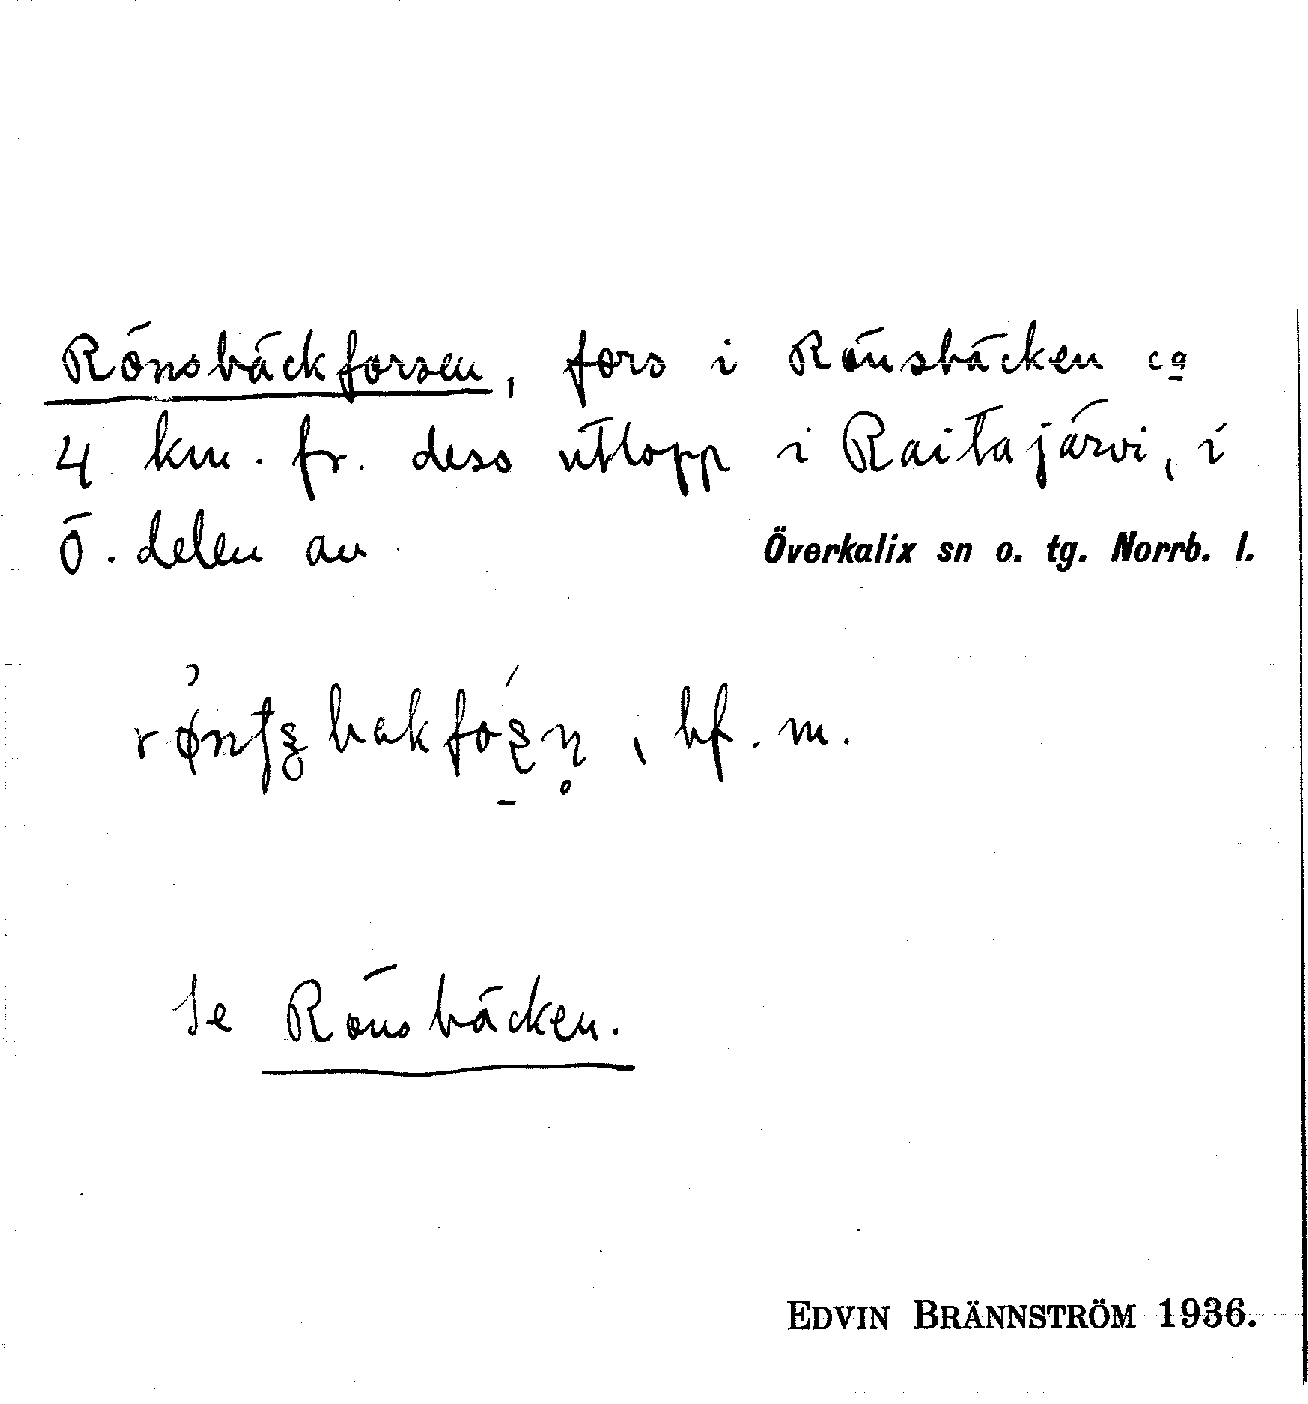 Rönsbäckforsen, fors i Rönsbäcken ca
4 km. fr. dess utlopp i Raitajärvi, i
Ö. delen av Överkalix sn o. tg. Norrb. l.
, bf. m.
Se Rönsbäcken.
EDVIN BRÄNNSTRÖM 1936.